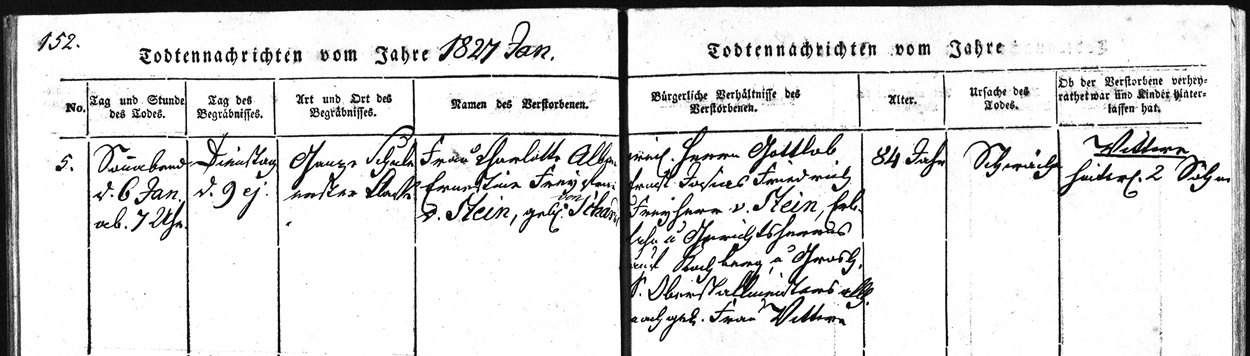 152.
Todtennachrichten vom Jahre 1827 Jan.
No.
Tag und Stunde
des Todes.
Tag des
Begräbnisses.
Art und Ort des
Begräbnisses.
Namen des Verstorbenen.
5.
Sonnabend
d. 6 Jan.
ab. 7 Uhr.
Dienstag
d. 9 ej.
Ganze Schule
erster Klasse
Frau Charlotte Alb
Ernestine Frey
v. Stein, geb. von Schard
Todtennachrichten vom Jahre
Bürgerliche Verhältnisse des
Verstorbenen.
Alter.
Ursache des
Todes.
Ob der Verstorbene verhey-
rathet war und Kinder hinter-
lassen hat.
Herrn Gottlob
Ernst Josias Friedrich
Freyherr v. Stein, Erb-
u Gerichtsherrns
auf Kochberg, u Grosh.
S. Oberstallmeisters allh.
nachgel. Frau Wittwe
84 Jahr
Schwäche
Wittwe
hinterl. 2 Söhne